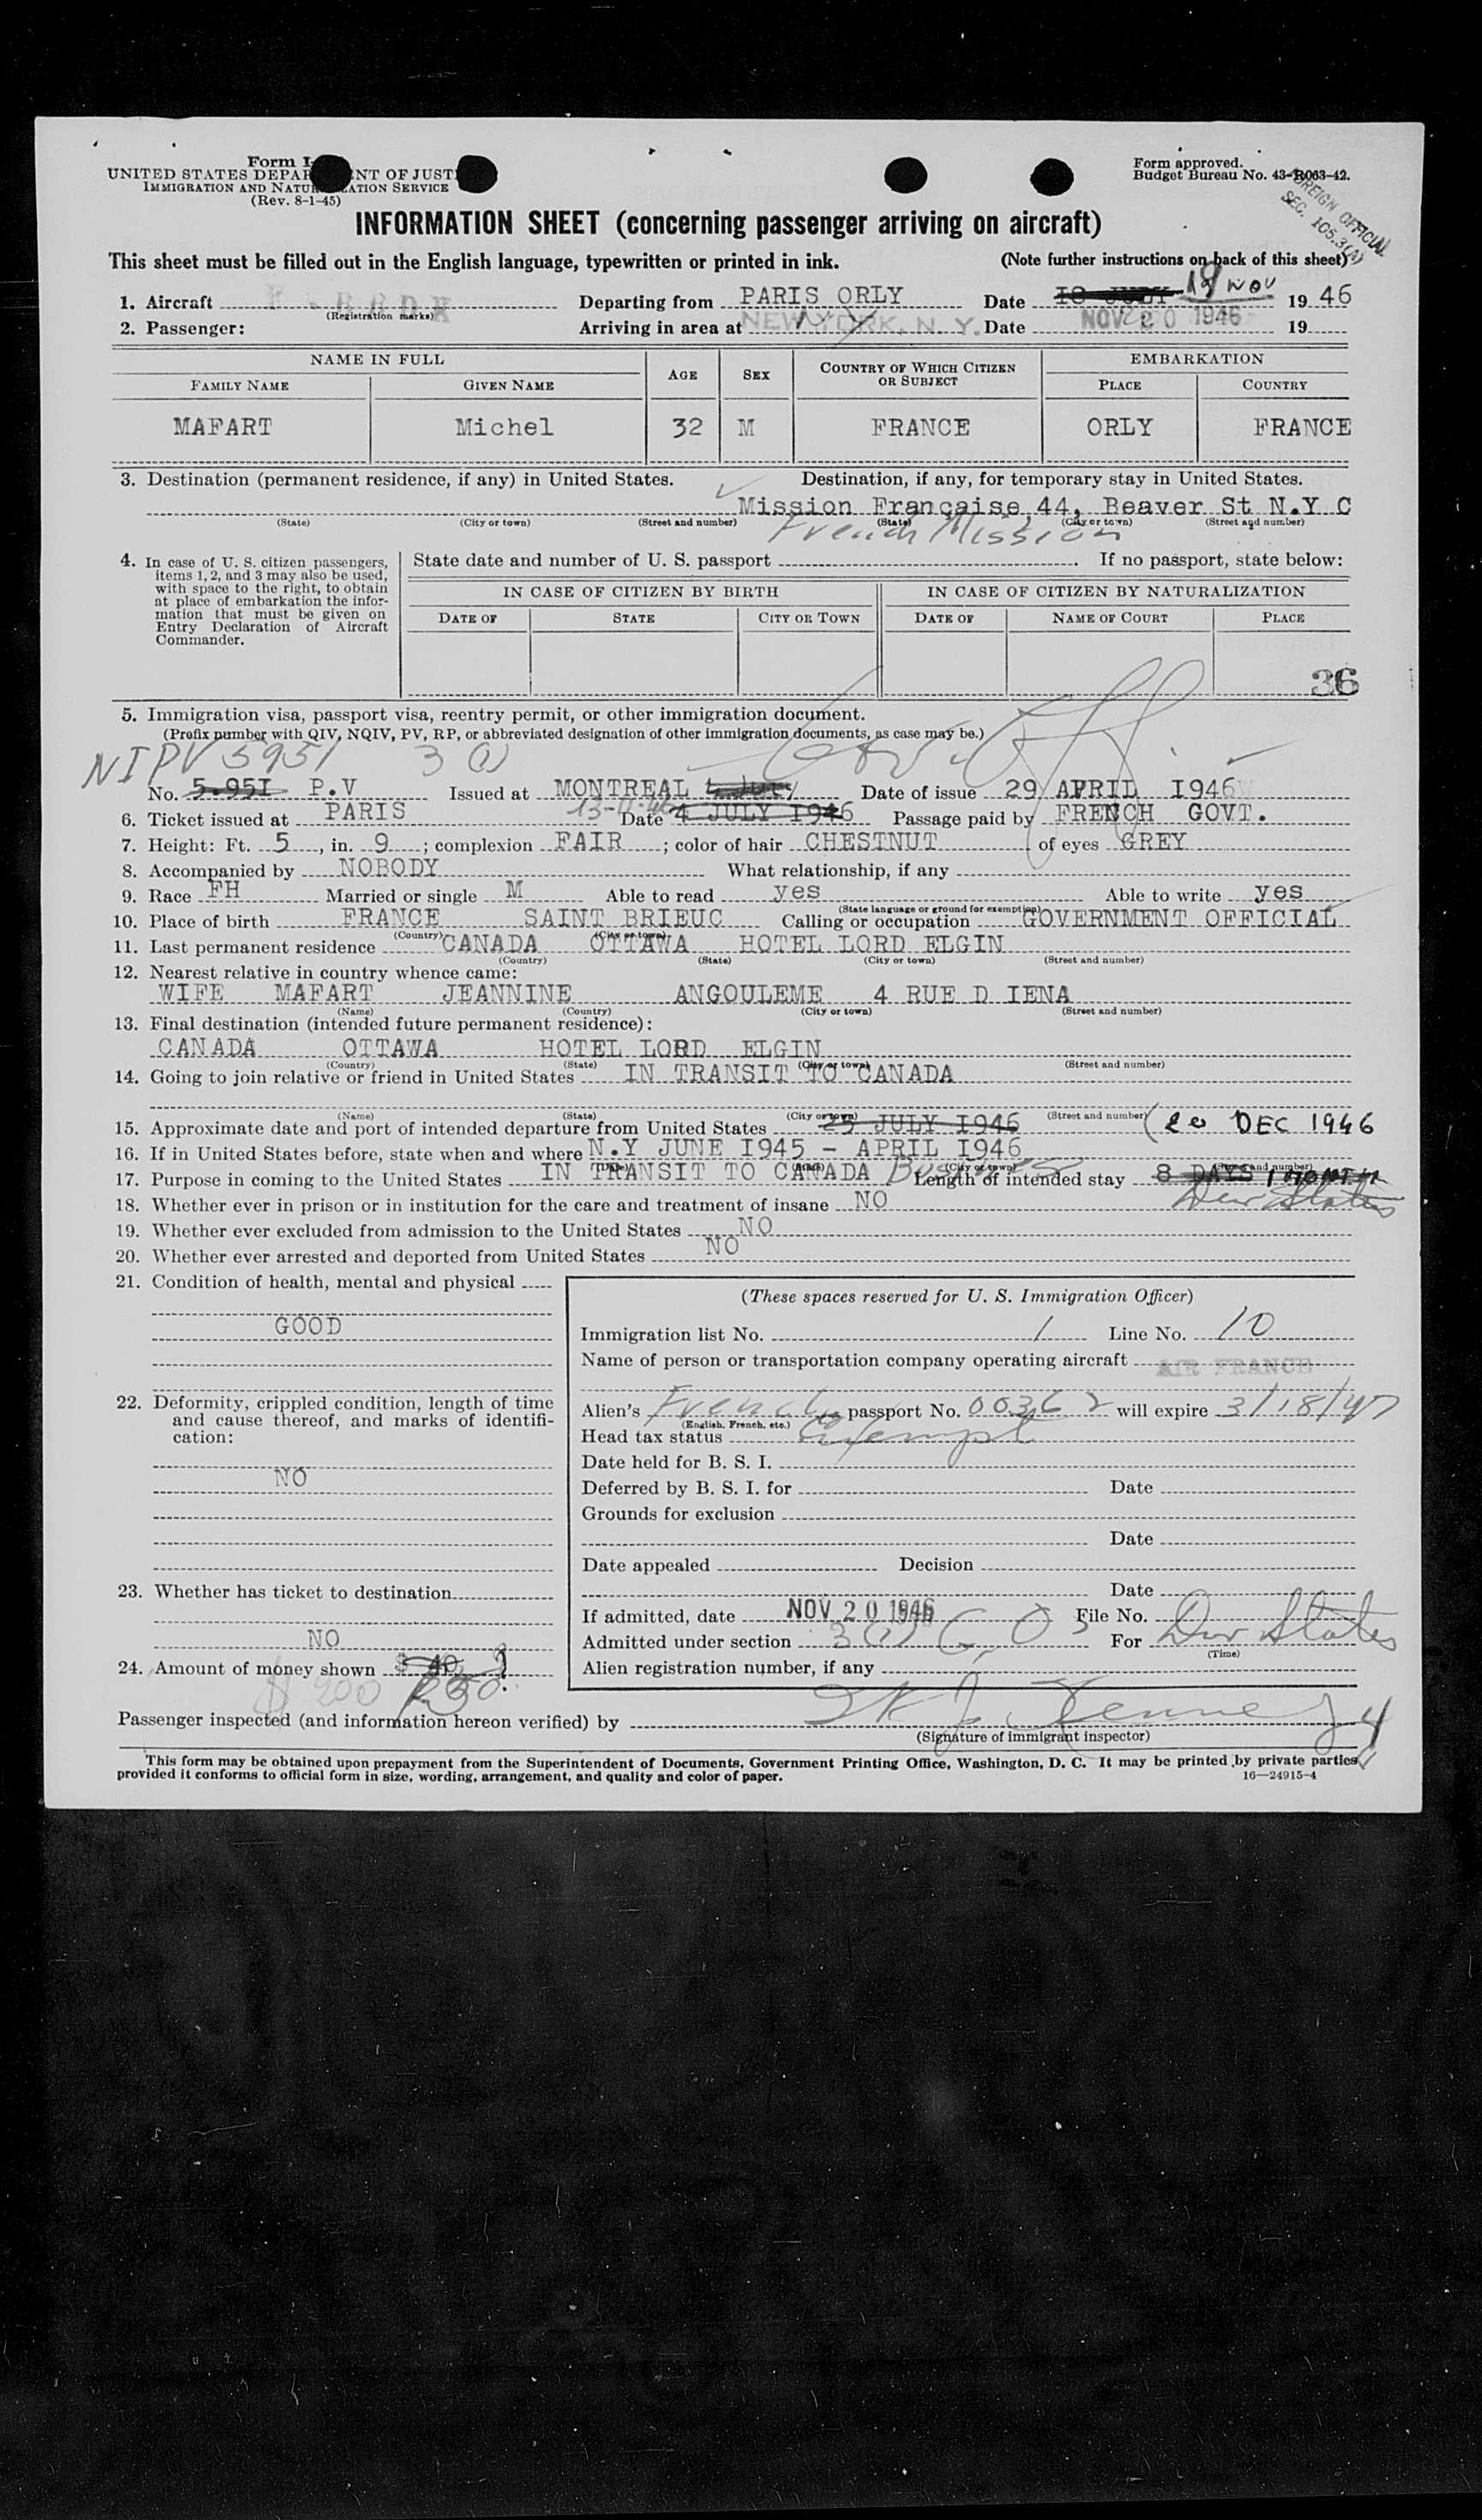 Form I-
UNITED STATES DEPAR NT OF JUST
IMMIGRATION AND NATU ATION SERVICE
(Rev. 8-1-45)
Form approved.
Budget Bureau No. 43-R063-42.
FOREIGN OFFICIAL
SEC. 105.3(A)
INFORMATION SHEET (concerning passenger arriving on aircraft)
This sheet must be filled out in the English language, typewritten or printed in ink. (Note further instructions on back of this sheet)
1. Aircraft Departing from PARIS ORLY Date I8 JULY 19 NOV 19 46
(Registration marks)
2. Passenger: Arriving in area at NEW YORK, N. Y. Date NOV 20 1946 19
NAME IN FULL AGE SEX COUNTRY OF WHICH CITIZEN OR SUBJECT EMBARKATION
FAMILY NAME GIVEN NAME PLACE COUNTRY
MAFART Michel 32 M FRANCE ORLY FRANCE
3. Destination (permanent residence, if any) in United States. Destination, if any, for temporary stay in United States.
Mission Française 44, Beaver St N.Y C
(State) (City or town) (Street and number) (State) (City or town) (Street and number)
French Mission
4. In case of U. S. citizen passengers, items 1, 2, and 3 may also be used, with space to the right, to obtain at place of embarkation the information that must be given on Entry Declaration of Aircraft Commander.
State date and number of U. S. passport If no passport, state below:
IN CASE OF CITIZEN BY BIRTH IN CASE OF CITIZEN BY NATURALIZATION
DATE OF STATE CITY OR TOWN DATE OF NAME OF COURT PLACE
36
5. Immigration visa, passport visa, reentry permit, or other immigration document.
(Prefix number with QIV, NQIV, PV, RP, or abbreviated designation of other immigration documents, as case may be.)
NIPV 5951 3(1)
No. 5.95I P.V Issued at MONTREAL Date of issue 29 APRIL I946
6. Ticket issued at PARIS 13-11-46 Date 4 JULY I946 Passage paid by FRENCH GOVT.
7. Height: Ft. 5, in. 9; complexion FAIR; color of hair CHESTNUT of eyes GREY
8. Accompanied by NOBODY What relationship, if any
9. Race FH Married or single M Able to read yes Able to write yes
(State language or ground for exemption)
10. Place of birth FRANCE SAINT BRIEUC Calling or occupation GOVERNMENT OFFICIAL
(Country) (City or town)
11. Last permanent residence CANADA OTTAWA HOTEL LORD ELGIN
(Country) (State) (City or town) (Street and number)
12. Nearest relative in country whence came:
WIFE MAFART JEANNINE ANGOULEME 4 RUE D IENA
(Name) (Country) (City or town) (Street and number)
13. Final destination (intended future permanent residence):
CANADA OTTAWA HOTEL LORD ELGIN
(Country) (State) (City or town) (Street and number)
14. Going to join relative or friend in United States IN TRANSIT TO CANADA
(Name) (State) (City or town) (Street and number)
15. Approximate date and port of intended departure from United States 25 JULY I946 20 DEC 1946
16. If in United States before, state when and where N.Y JUNE I945 - APRIL I946
(Date) (State) (City or town) (Street and number)
17. Purpose in coming to the United States IN TRANSIT TO CANADA Business Length of intended stay 8 DAYS 1 MONTH
Dur Status
18. Whether ever in prison or in institution for the care and treatment of insane NO
19. Whether ever excluded from admission to the United States NO
20. Whether ever arrested and deported from United States NO
21. Condition of health, mental and physical
GOOD
22. Deformity, crippled condition, length of time and cause thereof, and marks of identification:
NO
23. Whether has ticket to destination
NO
24. Amount of money shown $ 40
$ 200
(These spaces reserved for U. S. Immigration Officer)
Immigration list No. 1 Line No. 10
Name of person or transportation company operating aircraft AIR FRANCE
Alien's French passport No. 00362 will expire 3/18/47
(English, French, etc.)
Head tax status Exempt
Date held for B. S. I.
Deferred by B. S. I. for Date
Grounds for exclusion
Date
Date appealed Decision
Date
If admitted, date NOV 20 1946 File No.
Admitted under section 3(1) G.O For Dur Status
(Time)
Alien registration number, if any
Passenger inspected (and information hereon verified) by
(Signature of immigrant inspector)
This form may be obtained upon prepayment from the Superintendent of Documents, Government Printing Office, Washington, D. C. It may be printed by private parties
provided it conforms to official form in size, wording, arrangement, and quality and color of paper. 16—24915-4